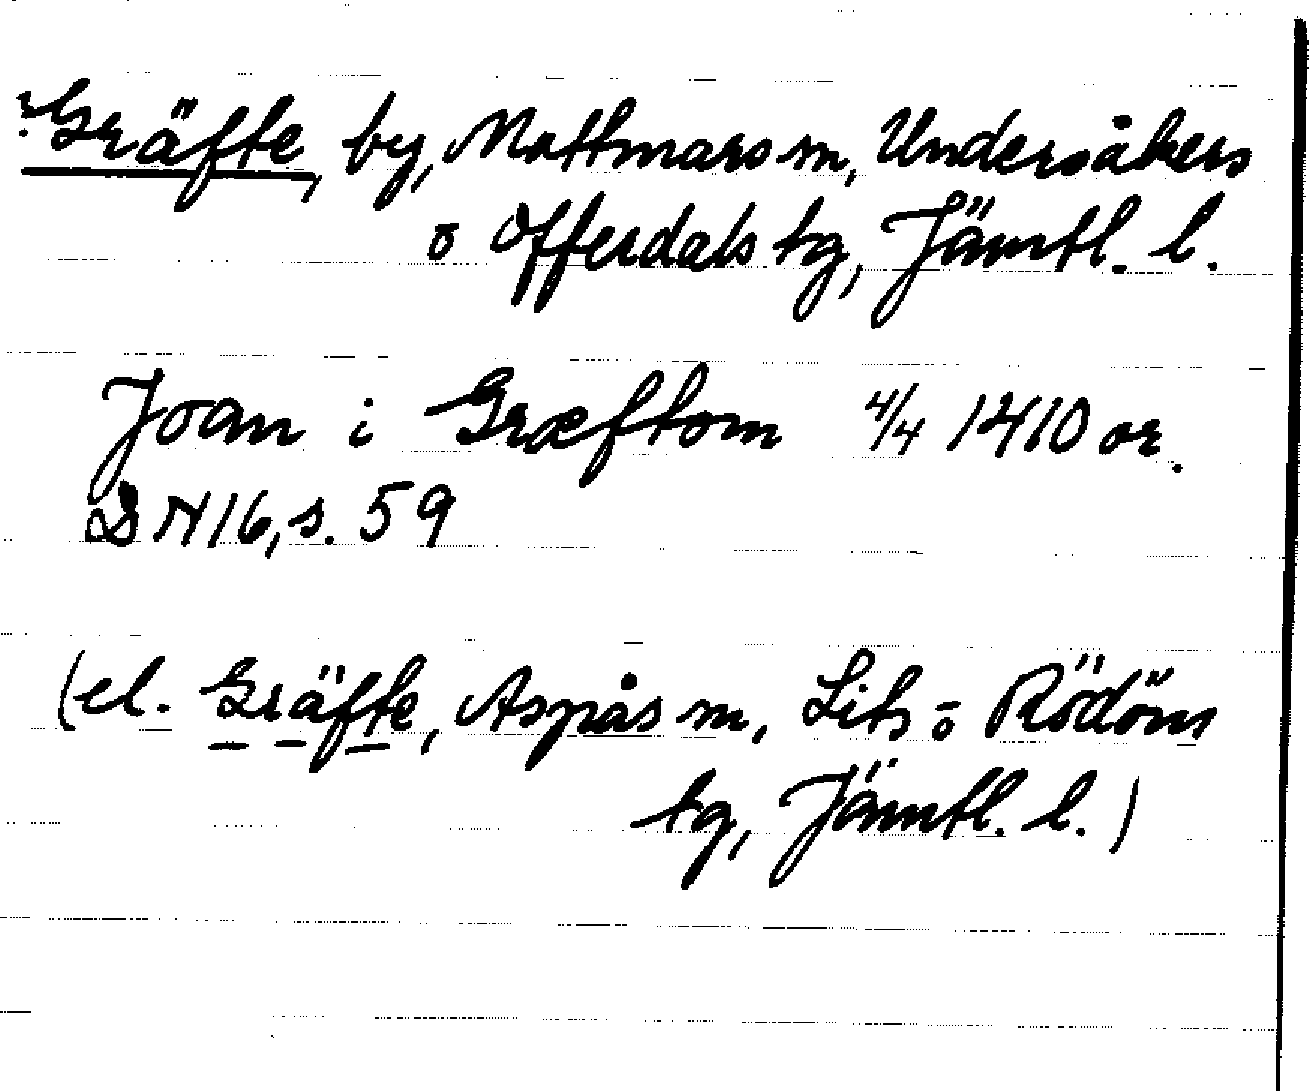 ?Gräfte, by, Mattmars sn, Undersåkers
o Offerdals tg, Jämtl. l.
Joan i Græftom 4/4 1410 or.
DN16, s. 59
(el. Gräfte, Aspås sn, Lits o Rödöns
tg, Jämtl. l.)